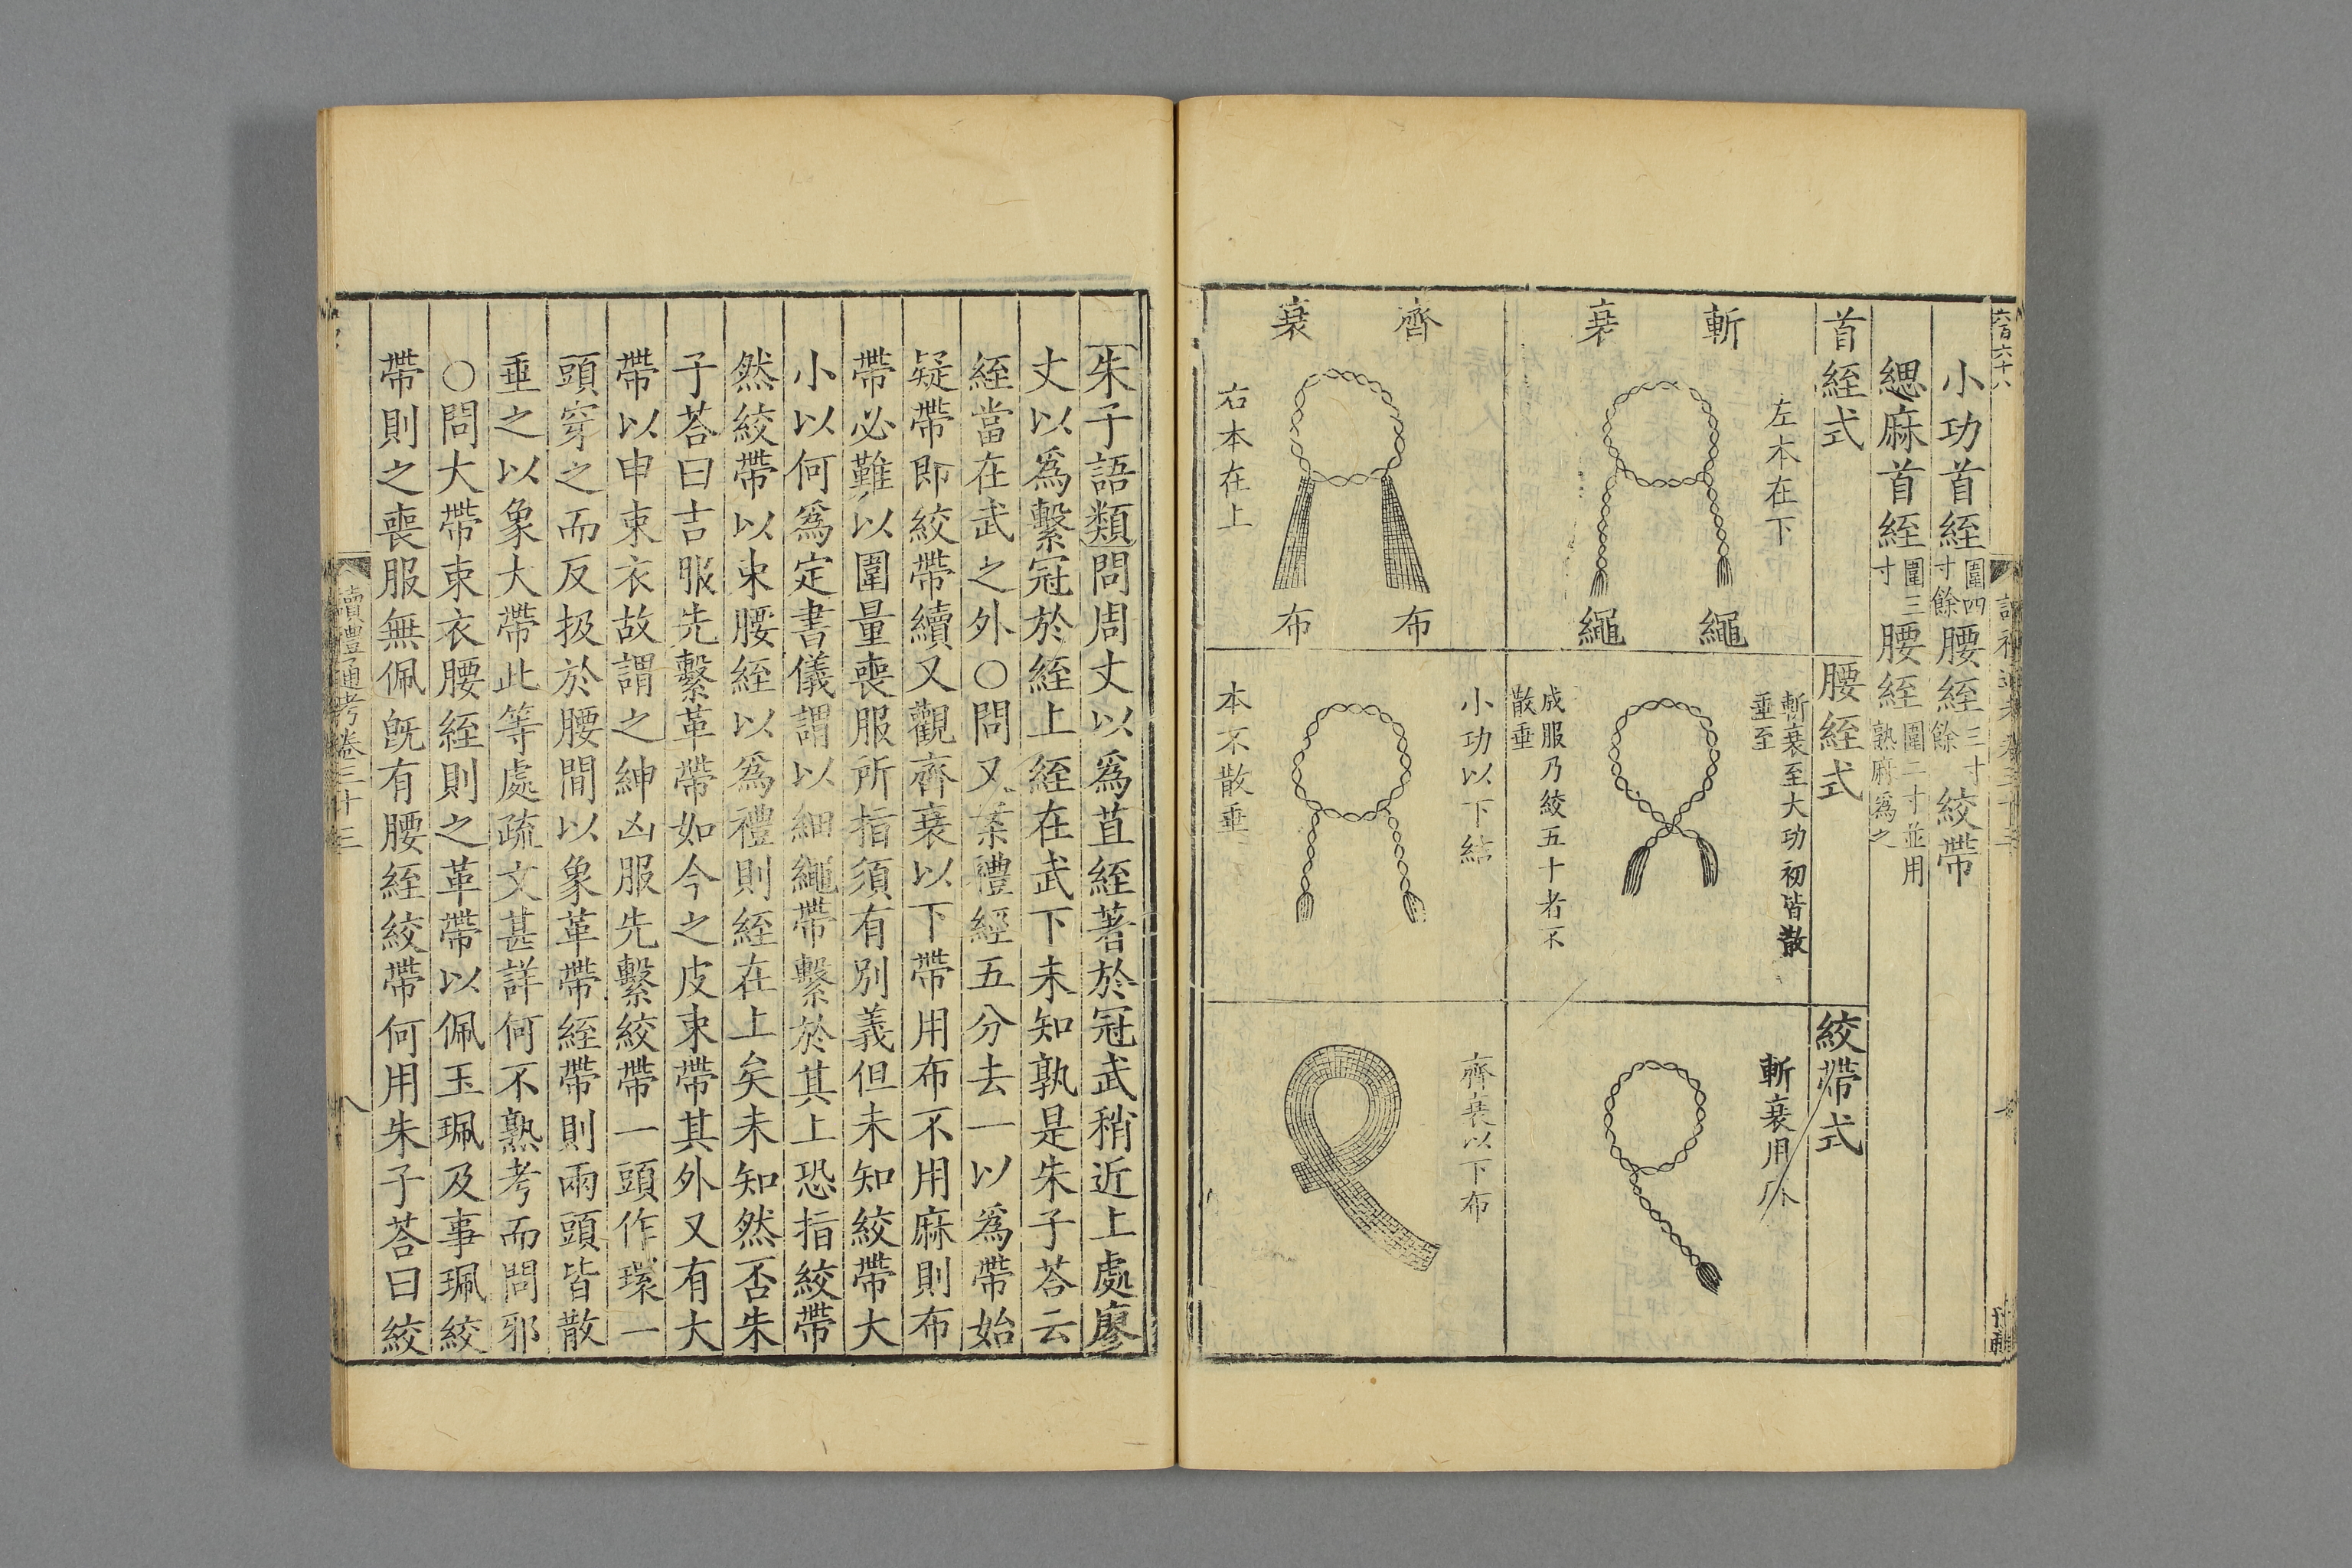 六百六十八
小功首絰圍四寸餘腰絰三寸餘絞帶
緦麻首絰圍三寸腰絰圍二寸並用熟麻爲之
首絰式
腰絰式
絞帶式
斬衰
左本在下
繩繩
斬衰至大功初皆散垂至
成服乃絞五十者不散垂
斬衰用
齊衰
右本在上
布布
小功以下結
本不散垂
齊衰以下布
朱子語類問周丈以爲苴絰著於冠武稍近上處廖
丈以爲繫冠於絰上絰在武下未知孰是朱子荅云
絰當在武之外○問又案禮經五分去一以爲帶始
疑帶即絞帶續又觀齊衰以下帶用布不用麻則布
帶必難以圍量喪服所指須有別義但未知絞帶大
小以何爲定書儀謂以細繩帶繫於其上恐指絞帶
然絞帶以束腰絰以爲禮則絰在上矣未知然否朱
子荅曰吉服先繫革帶如今之皮束帶其外又有大
帶以申束衣故謂之紳凶服先繫絞帶一頭作環一
頭穿之而反扱於腰間以象革帶絰帶則兩頭皆散
垂之以象大帶此等處疏文甚詳何不熟考而問邪
○問大帶束衣腰絰則之革帶以佩玉珮及事珮絞
帶則之喪服無佩旣有腰絰絞帶何用朱子荅曰絞
讀禮通考卷三十三
八